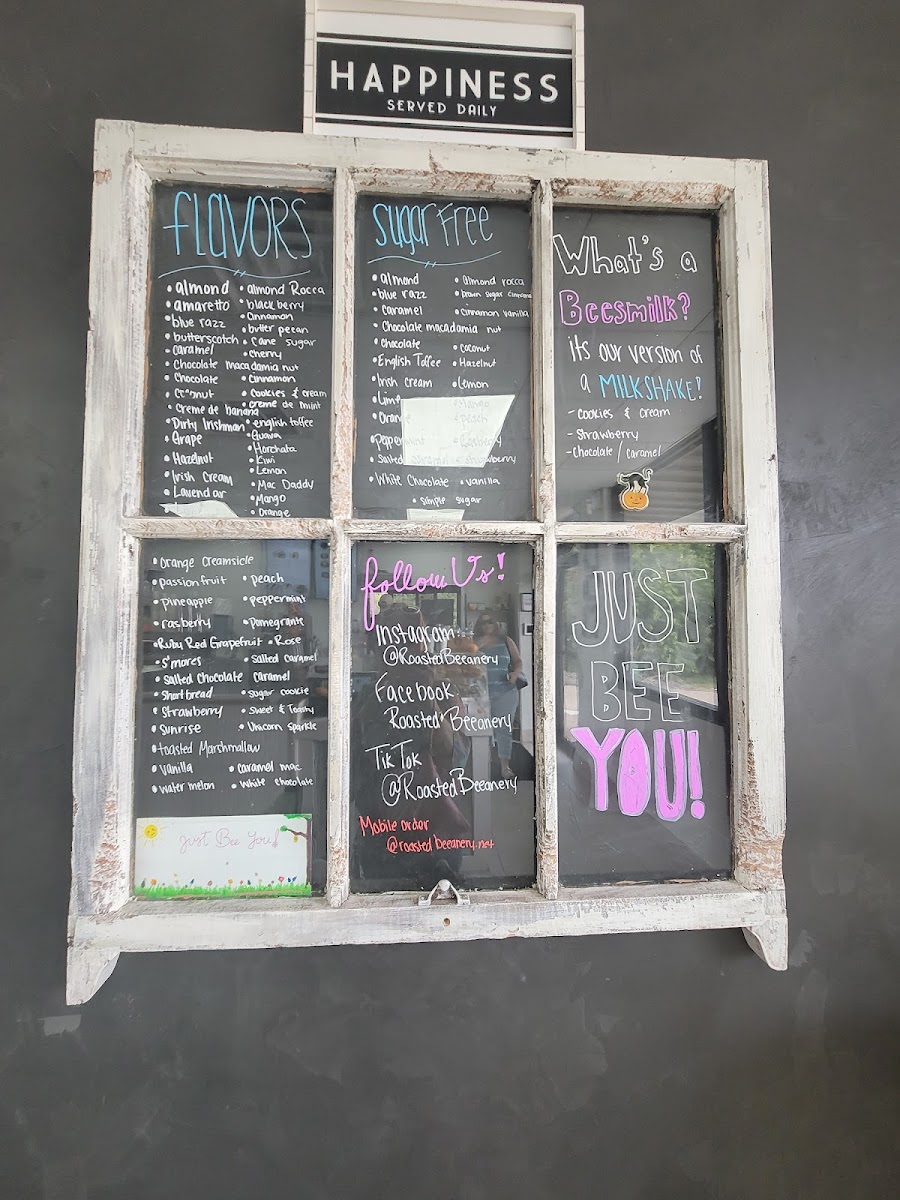 HAPPINESS
SERVED DAILY
FLAVORS
• almond • almond Rocca
• amaretto • blackberry
• blue razz • Cinnamon
• butterscotch • butter pecan
• caramel • cane sugar
• cherry
• Chocolate macadamia nut
• Chocolate • Cinnamon
• Cookies & cream
• Creme de banana • creme de mint
• Dirty Irishman • english toffee
• Grape • Guava
• Horchata
• Hazelnut • Kiwi
• Irish Cream • Lemon
• Lavendar • Mac Daddy
• Mango
• Orange
Sugar Free
• almond • Almond rocca
• blue razz • brown sugar
• Caramel • Cinnamon vanilla
• Chocolate macadamia nut
• Chocolate • Coconut
• English Toffee • Hazelnut
• Irish Cream • Lemon
• Lime • Mango
• Orange • Peach
• Peppermint • Rasberry
• Salted Caramel • Strawberry
• White Chocolate • Vanilla
• Simple sugar
What's a
Beesmilk?
its our version of
a MILKSHAKE!
- Cookies & Cream
- Strawberry
- Chocolate / Caramel
• Orange Creamsicle
• passionfruit • peach
• Pineapple • peppermint
• rasberry • Pomegrante
• Ruby Red Grapefruit • Rose
• S'mores • Salted Caramel
• Salted Chocolate Caramel
• Shortbread • Sugar cookie
• Strawberry • Sweet & Toasty
• Sunrise • Unicorn Sparkle
• toasted Marshmallow
• Vanilla • Caramel mac
• Water melon • White Chocolate
just Bee You!
follow Us!
Instagram
@RoastedBeeanery
Facebook
Roasted Beeanery
TikTok
@RoastedBeeanery
Mobile order
@roastedbeeanery.net
JUST
BEE
YOU!